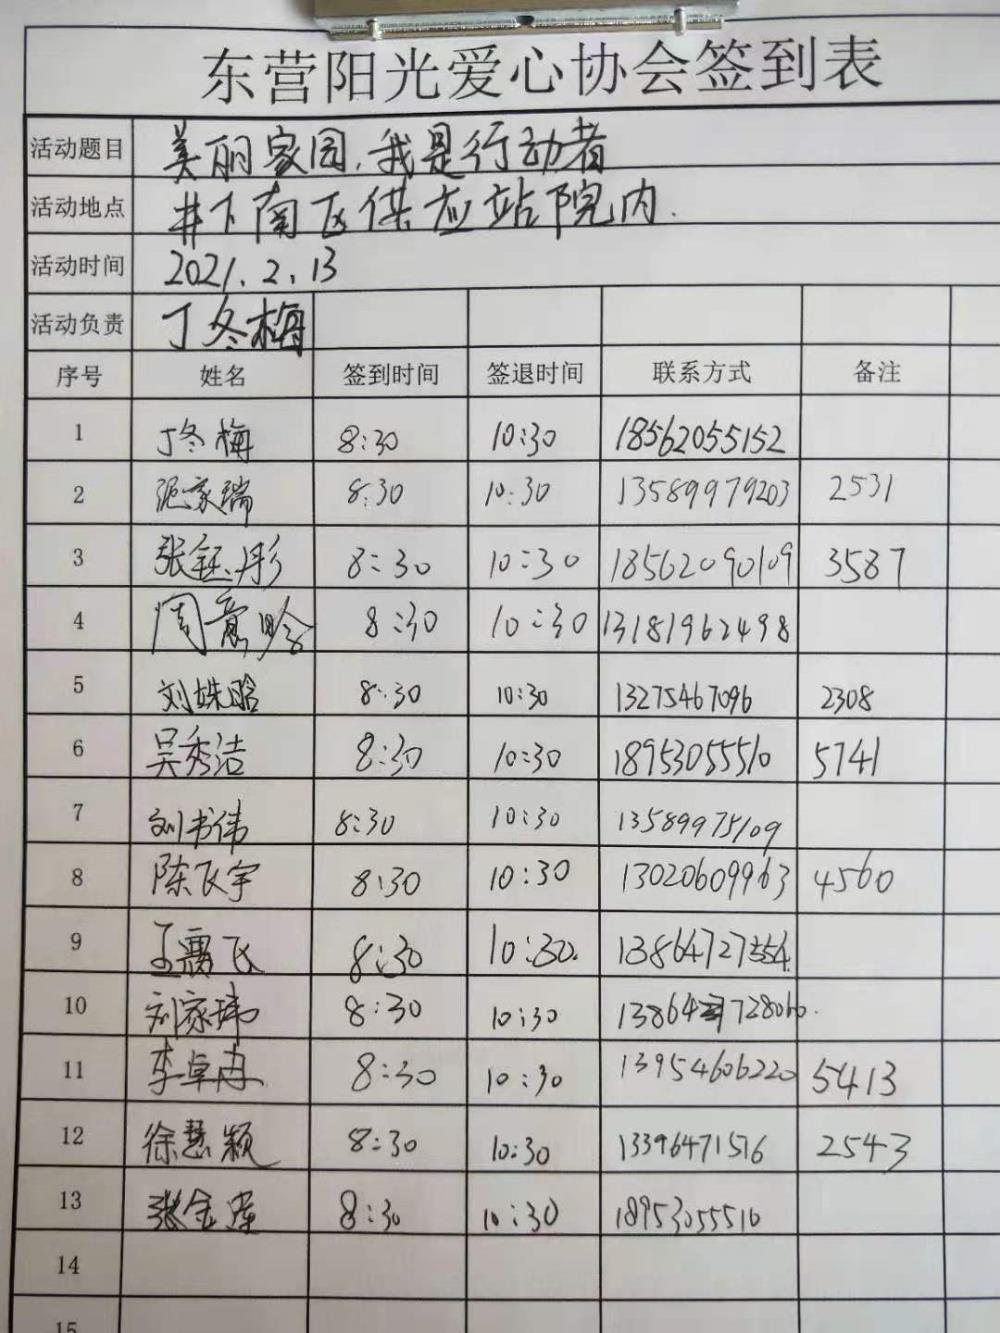 东营阳光爱心协会签到表
活动题目 美丽家园,我是行动者
活动地点 井下南区供应站院内.
活动时间 2021.2.13
活动负责 丁冬梅
序号 姓名 签到时间 签退时间 联系方式 备注
1 丁冬梅 8:30 10:30 18562055152
2 家瑞 8:30 10:30 13589979203 2531
3 张钰彤 8:30 10:30 18562090109 3587
4 周意晗 8:30 10:30 13181962498
5 刘姝晗 8:30 10:30 13275467096 2308
6 吴秀洁 8:30 10:30 18953055510 5741
7 刘书伟 8:30 10:30 13589975109
8 陈飞宇 8:30 10:30 13020609963 4560
9 王飞 8:30 10:30.
10 刘家玮 8:30 10:30
11 李卓冉 8:30 10:30 13954606220 5413
12 徐慧颖 8:30 10:30 13396471576 2543
13 张金 8:30 10:30 18953055510
14
15